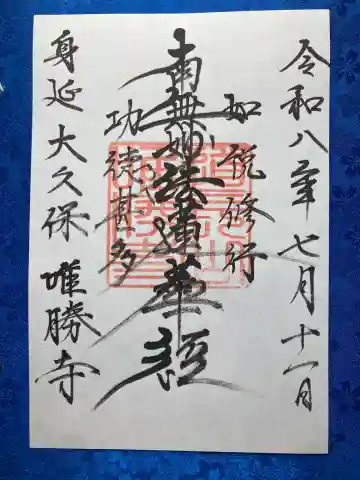 令和八年七月十一日
如説修行
南無妙法蓮華経
功徳甚多
身延大久保 唯勝寺